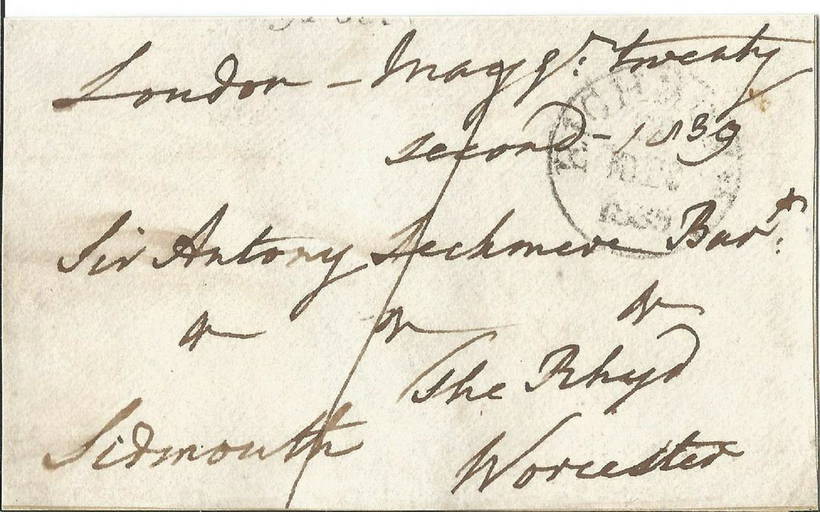 London - May twenty
second - 1839
Sir Antony Lechmere Bart.
The Rhyd
Sidmouth Worcester